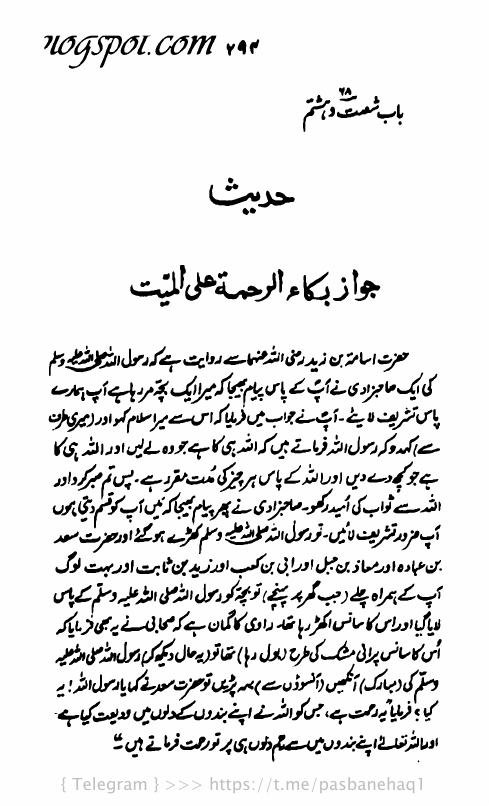 logspot.com ۲۹۴
۶۸
باب شصت و ہشتم
حدیث
جواز بکاء الرحمۃ علی المیّت
حضرت اسامۃ بن زید رضی اللہ عنہما سے روایت ہے کہ رسول اللہ صلی اللہ علیہ وسلم
کی ایک صاحبزادی نے آپؐ کے پاس پیام بھیجا کہ میرا ایک بچہ مر رہا ہے آپ ہمارے
پاس تشریف لایئے۔ آپؐ نے جواب میں فرمایا کہ اس سے میرا سلام کہو اور (میری طرف
سے) کہدو کہ رسول اللہ فرماتے ہیں کہ اللہ ہی کا ہے جو وہ لے لیں اور اللہ ہی کا
ہے جو کچھ دے دیں اور اللہ کے پاس ہر چیز کی مدت مقرر ہے۔ پس تم صبر کرو اور
اللہ سے ثواب کی امید رکھو۔ صاحبزادی نے پھر پیام بھیجا کہ میں آپ کو قسم دیتی ہوں
آپ ضرور تشریف لائیں۔ تو رسول اللہ صلی اللہ علیہ وسلم کھڑے ہو گئے اور حضرت سعد
بن عبادہ اور معاذ بن جبل اور ابی بن کعب اور زید بن ثابت اور بہت لوگ
آپ کے ہمراہ چلے (جب گھر پر پہنچے) تو بچہ کو رسول اللہ صلی اللہ علیہ وسلم کے پاس
لایا گیا اور اس کا سانس اکھڑ رہا تھا۔ راوی کا گمان ہے کہ صحابی نے یہ بھی فرمایا کہ
اُس کا سانس پرانی مشک کی طرح (بول رہا) تھا تو (یہ حال دیکھ کر) رسول اللہ صلی اللہ علیہ
وسلم کی (مبارک) آنکھیں (آنسوؤں سے) بہہ پڑیں تو حضرت سعد نے کہا یا رسول اللہ! یہ
کیا؟ فرمایا یہ رحمت ہے، جس کو اللہ نے اپنے بندوں کے دلوں میں ودیعت کیا ہے۔
اور اللہ تعالےٰ اپنے بندوں میں سے رحم دلوں ہی پر تو رحمت فرماتے ہیں
{ Telegram } >>> https://t.me/pasbanehaq1